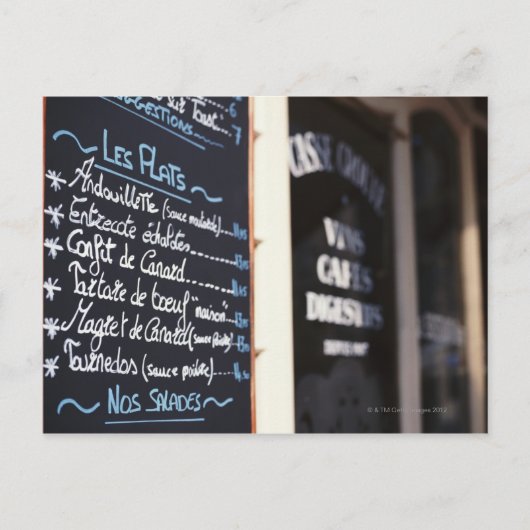 sur Toast 6
SUGGESTIONS 7
LES PLATS
* Andouillette (sauce moutarde)
* Entrecote échalotes
* Confit de Canard
* Tartare de boeuf "maison"
* Magret de Canard (sauce poivre)
* Tournedos (sauce poivre)
NOS SALADES
CASSE CROUTE
VINS
CAFES
DIGESTIFS
DEPUIS
© & TM Getty Images 2012